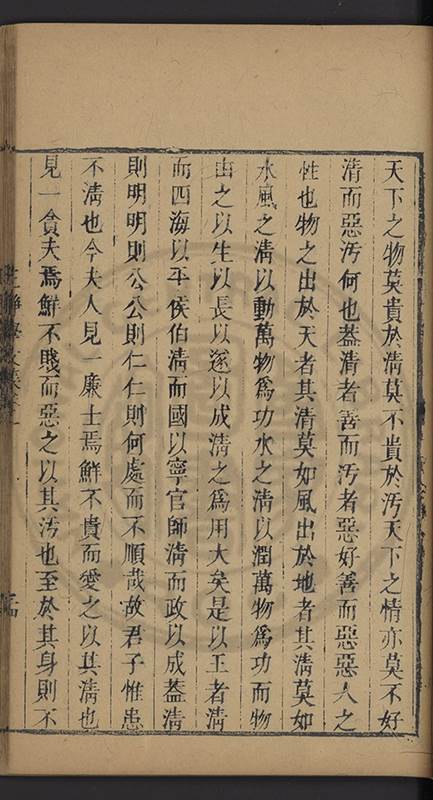 天下之物莫貴於清莫不貴於汚天下之情亦莫不好
清而惡汚何也葢清者善而汚者惡好善而惡惡人之
性也物之出於天者其清莫如風出於地者其清莫如
水風之清以動萬物爲功水之清以潤萬物爲功而物
由之以生以長以遂以成清之爲用大矣是以王者清
而四海以平侯伯清而國以寧官師清而政以成葢清
則明明則公公則仁仁則何處而不順哉故君子惟患
不清也今夫人見一廉士焉鮮不貴而愛之以其清也
見一貪夫焉鮮不賤而惡之以其汚也至於其身則不